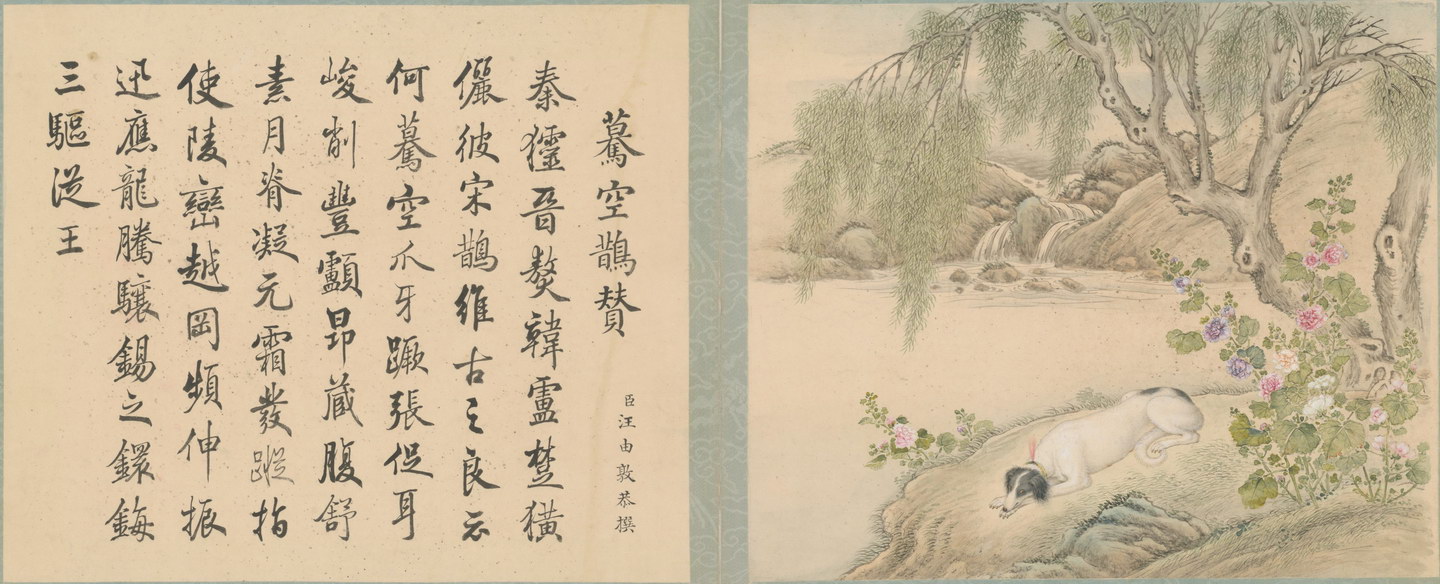 驀空鵲賛
臣汪由敦恭撰
秦晉獒韓盧楚獚
儷彼宋鵲維古之良云
何驀空爪牙蹶張促耳
峻削豐顱昂藏腹舒
素月脊凝元霜發蹤指
使陵巒越岡頻伸振
迅應龍騰驤錫之鐶鋂
三驅從王